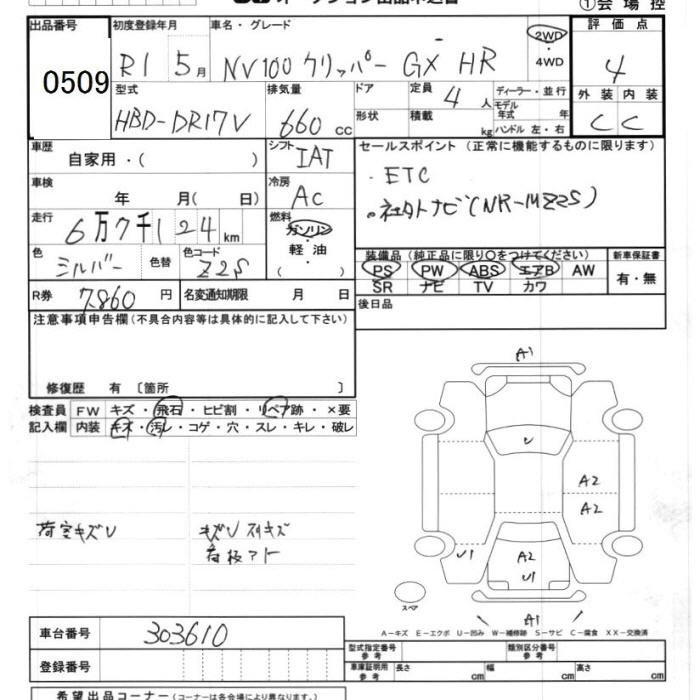 ①会場控
出品番号 初度登録年月 車名・グレード 2WD 評価点
0509 R1 5月 NV100クリッパー GX HR ・4WD 4
型式 排気量 ドア 定員 ディーラー・並行 外装 内装
HBD-DR17V 660cc 形状 積載 4人 kg モデル年式 年 ハンドル 左・右 C C
車歴 シフト セールスポイント(正常に機能するものに限ります)
自家用・( ) IAT
・ETC
車検 冷房
年 月(日) AC
・社外ナビ(NR-MZ25)
走行 燃料
6万7千124km ガソリン
軽・油
・( )
装備品(純正品に限り○をつけてください) 新車保証書
色 色替 色コード
シルバー Z2S
PS PW ABS エアB AW 有・無
SR ナビ TV カワ
R券 7,860円 名変通知期限 月 日
後日品
注意事項申告欄(不具合内容等は具体的に記入して下さい)
修復歴 有 〔箇所 〕
検査員 FW キズ・飛石・ヒビ割・リペア跡・×要
記入欄 内装 キズ・汚レ・コゲ・穴・スレ・キレ・破レ
A1
U
A2
A2
荷室キズU キズU スリキズ
看板アト
U1 A2
U1
スペア
A1
A-キズ E-エクボ U-凹み W-補修跡 S-サビ C-腐食 XX-交換済
車台番号 303610
型式指定番号 参考 類別区分番号 参考
登録番号 車庫証明用 参考 長さ cm 幅 cm 高さ cm
希望出品コーナー(コーナーは各会場により異なります)